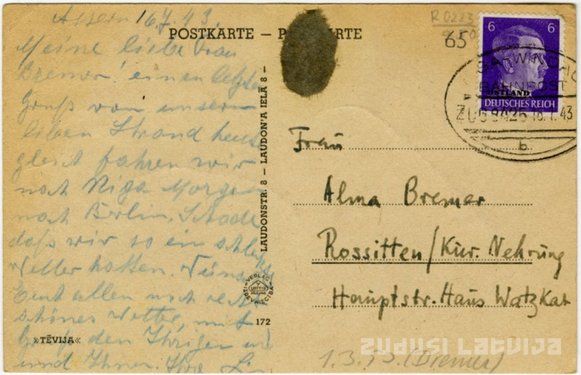 Assern 16.7.43.
Meine liebe Frau
Bremer! einen letzten
Gruß von unserm
lieben Strand heute
gleich fahren wir
nach Riga Morgen
nach Berlin. Schade
daß wir so ein schlechtes
Wetter hatten.
Euch allen noch recht
schönes Wetter, mit
den Ihrigen
und Ihnen. Ihre
»TĒVIJA«
POSTKARTE – P KARTE
LAUDONSTR. 8 – LAUDON'A IELĀ 8 –
172
R 0223
65
6 6
OSTLAND
DEUTSCHES REICH
BAHNPOST
ZUG 9426 16.7.43
b
Frau
Alma Bremer
Rossitten/Kur. Nehrung
Hauptstr. Haus Watzkat
1.3.93 (Bremer)
ZUDUSI LATVIJA